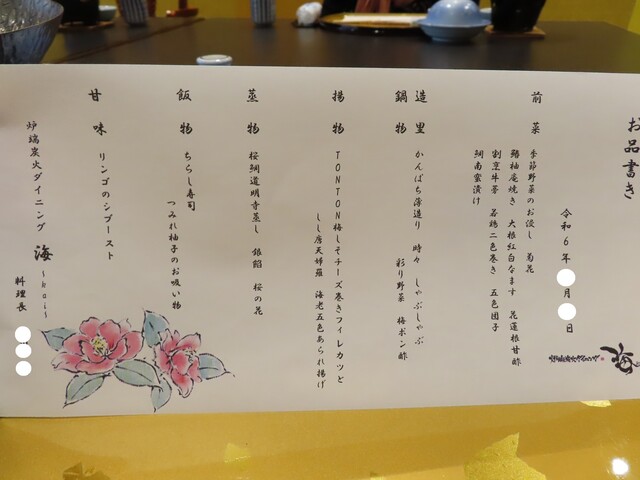 お品書き
令和6年 月 日
前菜 季節野菜のお浸し 菊花
鰆柚庵焼き 大根紅白なます 花蓮根甘酢
割烹牛蒡 若鶏二色巻き 五色団子
鯛南蛮漬け
造里 かんぱち薄造り 時々 しゃぶしゃぶ
鍋物 彩り野菜 梅ポン酢
揚物 TONTON梅しそチーズ巻きフィレカツと
しし唐天婦羅 海老五色あられ揚げ
蒸物 桜鯛道明寺蒸し 銀餡 桜の花
飯物 ちらし寿司
つみれ柚子のお吸い物
甘味 リンゴのシブースト
炉端炭火ダイニング 海 ~kai~
料理長